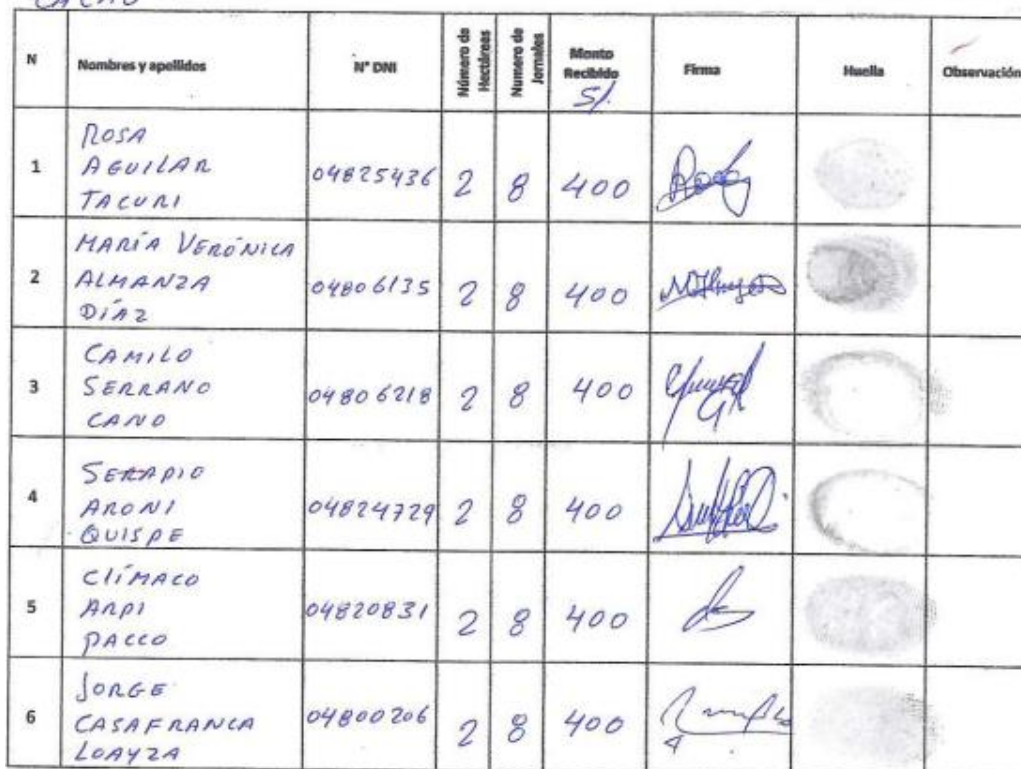 CACAO
N Nombres y apellidos N° DNI Número de Hectáreas Numero de Jornales Monto Recibido S/. Firma Huella Observación
1 ROSA AGUILAR TACURI 04825436 2 8 400
2 MARÍA VERÓNICA ALMANZA DÍAZ 04806135 2 8 400
3 CAMILO SERRANO CANO 04806218 2 8 400
4 SERAPIO ARONI QUISPE 04824729 2 8 400
5 CLÍMACO ARPI PACCO 04820831 2 8 400
6 JORGE CASAFRANCA LOAYZA 04800206 2 8 400